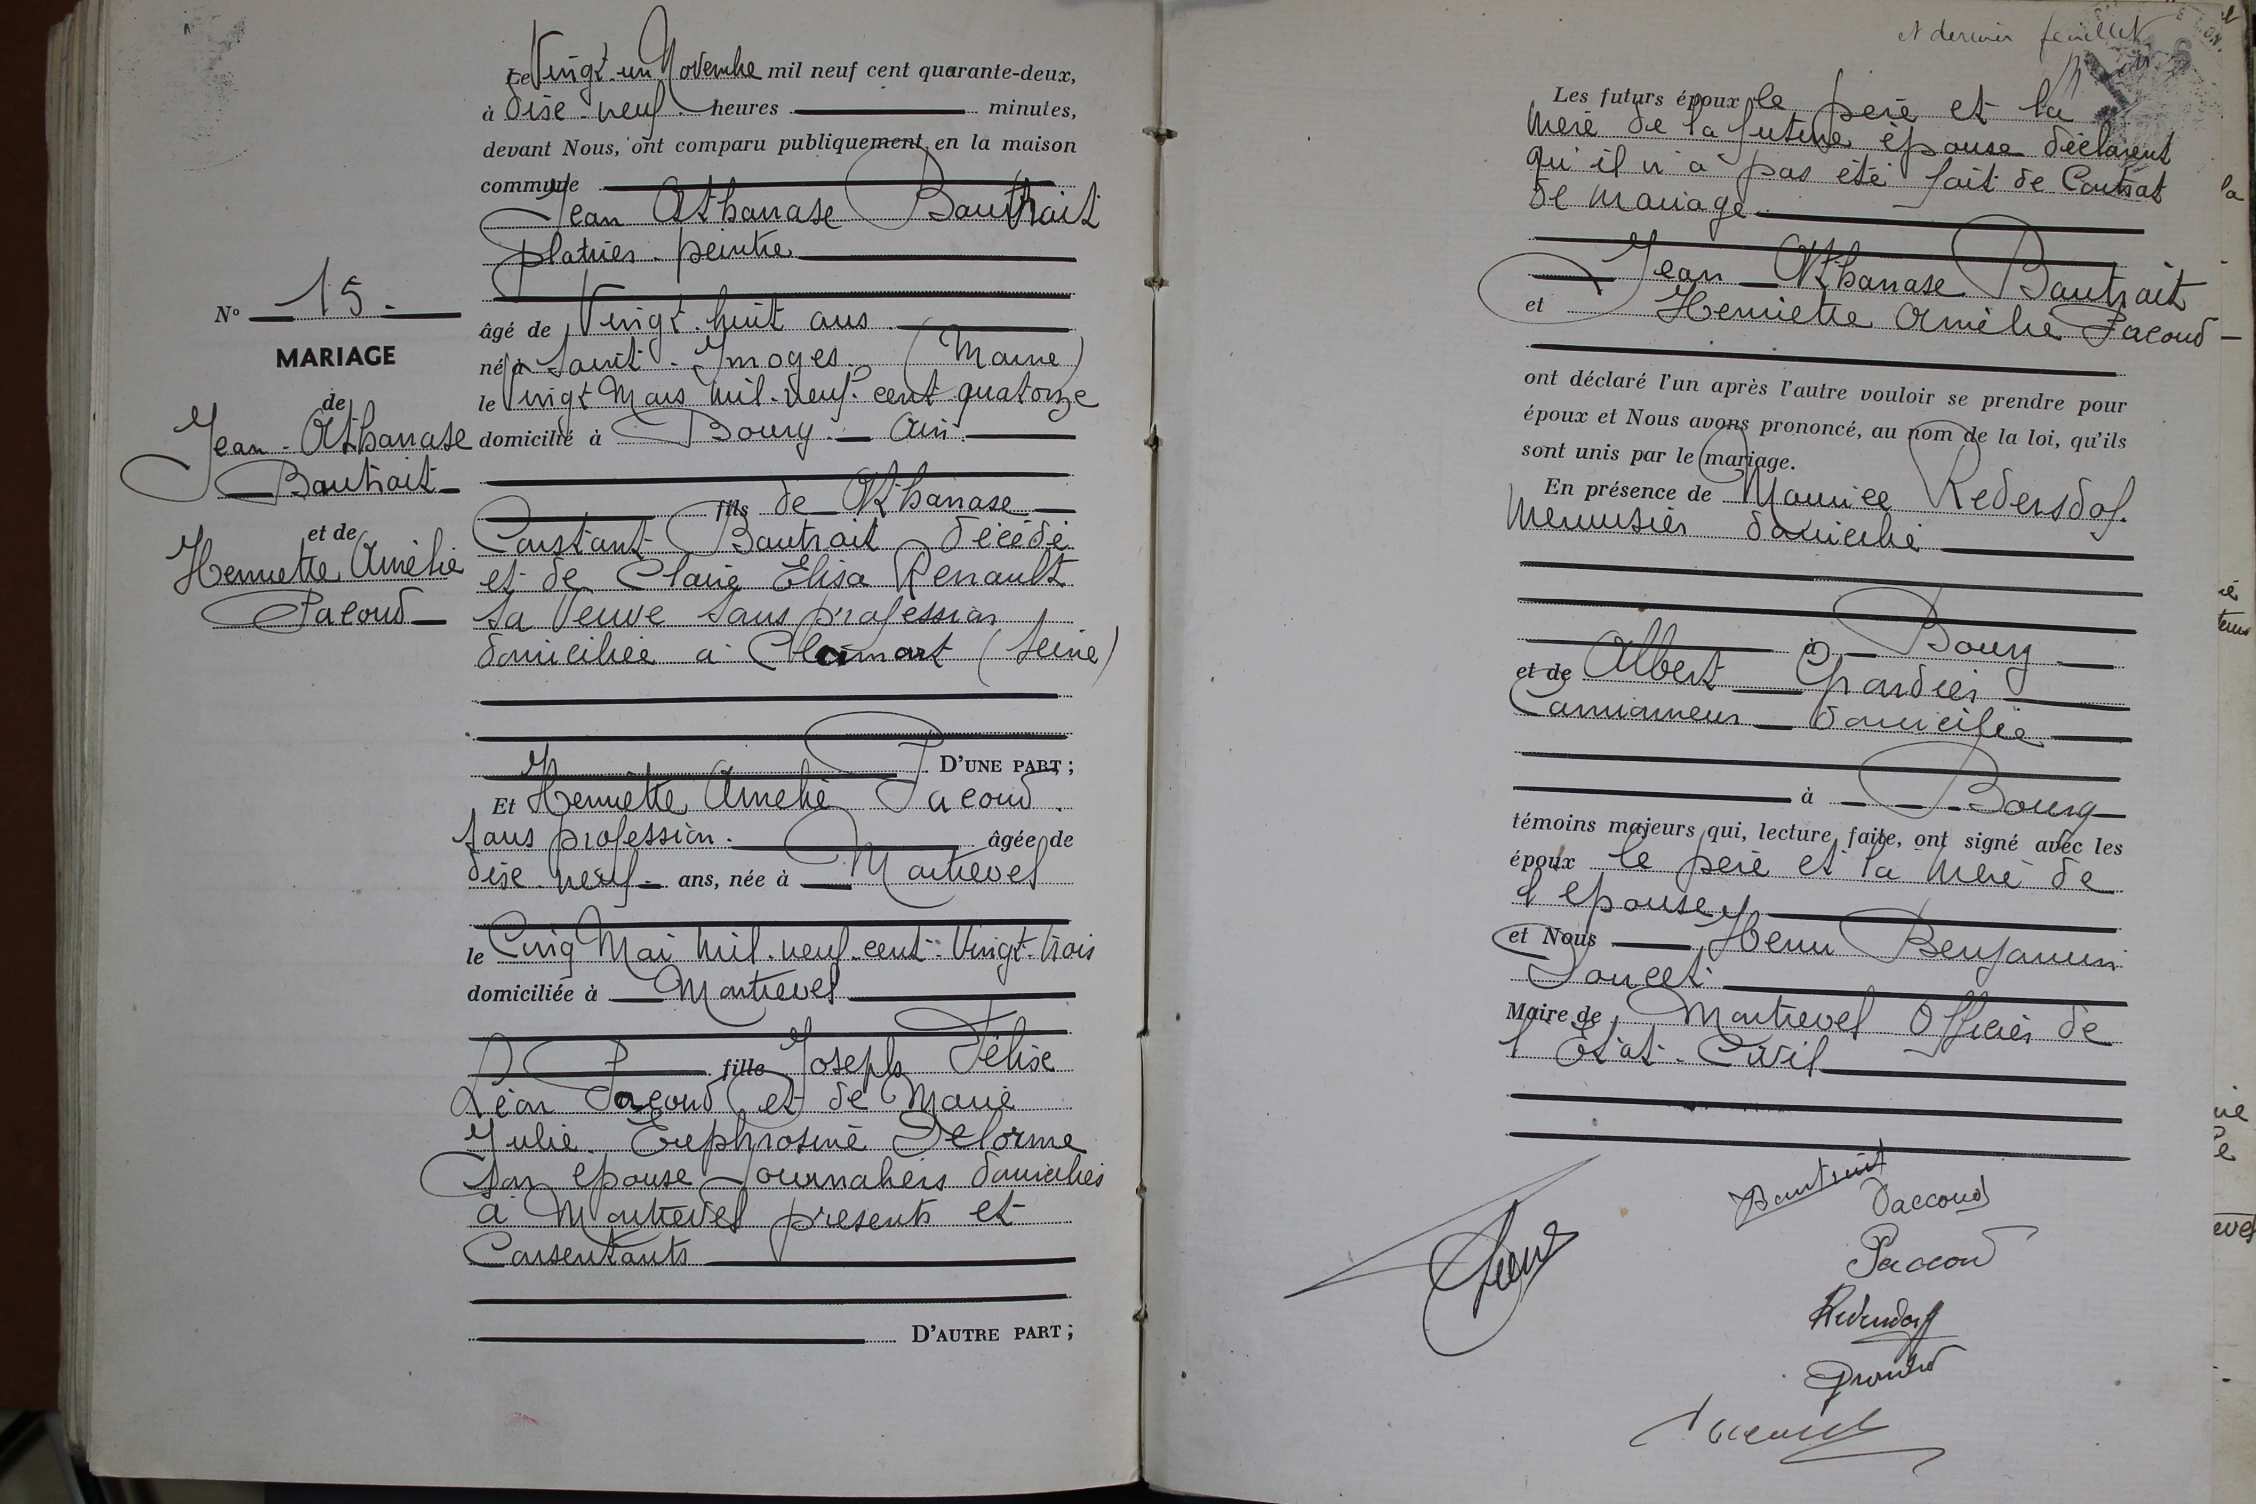 N° 15
MARIAGE
de
Jean-Athanase
Bautrait
et de
Henriette Amélie
Pacoud
Le Vingt-un Novembre mil neuf cent quarante-deux,
à dise-neuf heures minutes,
devant Nous, ont comparu publiquement en la maison
commune
Jean Athanase Bautrait
platrier-peintre
âgé de Vingt-huit ans
né à Saint-Imoges (Marne)
le Vingt Mars mil-neuf-cent quatorze
domicilié à Bourg Ain
fils de Athanase
Constant Bautrait décédé
et de Claire Elisa Renault
sa Veuve sans profession
domiciliée à Clamart (Seine)
D'UNE PART ;
Et Henriette Amélie Pacoud
sans profession. âgée de
dise-neuf ans, née à Montrevel
le Cinq Mai mil-neuf-cent-vingt-trois
domiciliée à Montrevel
fille Joseph Félise
Léon Pacoud et de Marie
Julie Euphrosine Delorme
son epouse Journaliers domiciliés
à Montrevel présents et
Consentants
D'AUTRE PART ;
et dernier feuillet
Les futurs époux le père et la
mère de la future épouse déclarent
qu'il n'a pas été fait de Contrat
de mariage
Jean Athanase Bautrait
et Henriette Amélie Pacoud
ont déclaré l'un après l'autre vouloir se prendre pour
époux et Nous avons prononcé, au nom de la loi, qu'ils
sont unis par le mariage.
En présence de Maurice Redersdof.
Menuisier domicilié
à Bourg
et de Albert Chardier
Camionneur domicilié
à Bourg
témoins majeurs qui, lecture faite, ont signé avec les
époux le père et la mère de
l'epouse
et Nous Henri Benjamin
Maire de Montrevel Officier de
l'Etat-Civil
Bautrait
Paccoud
Paccoud